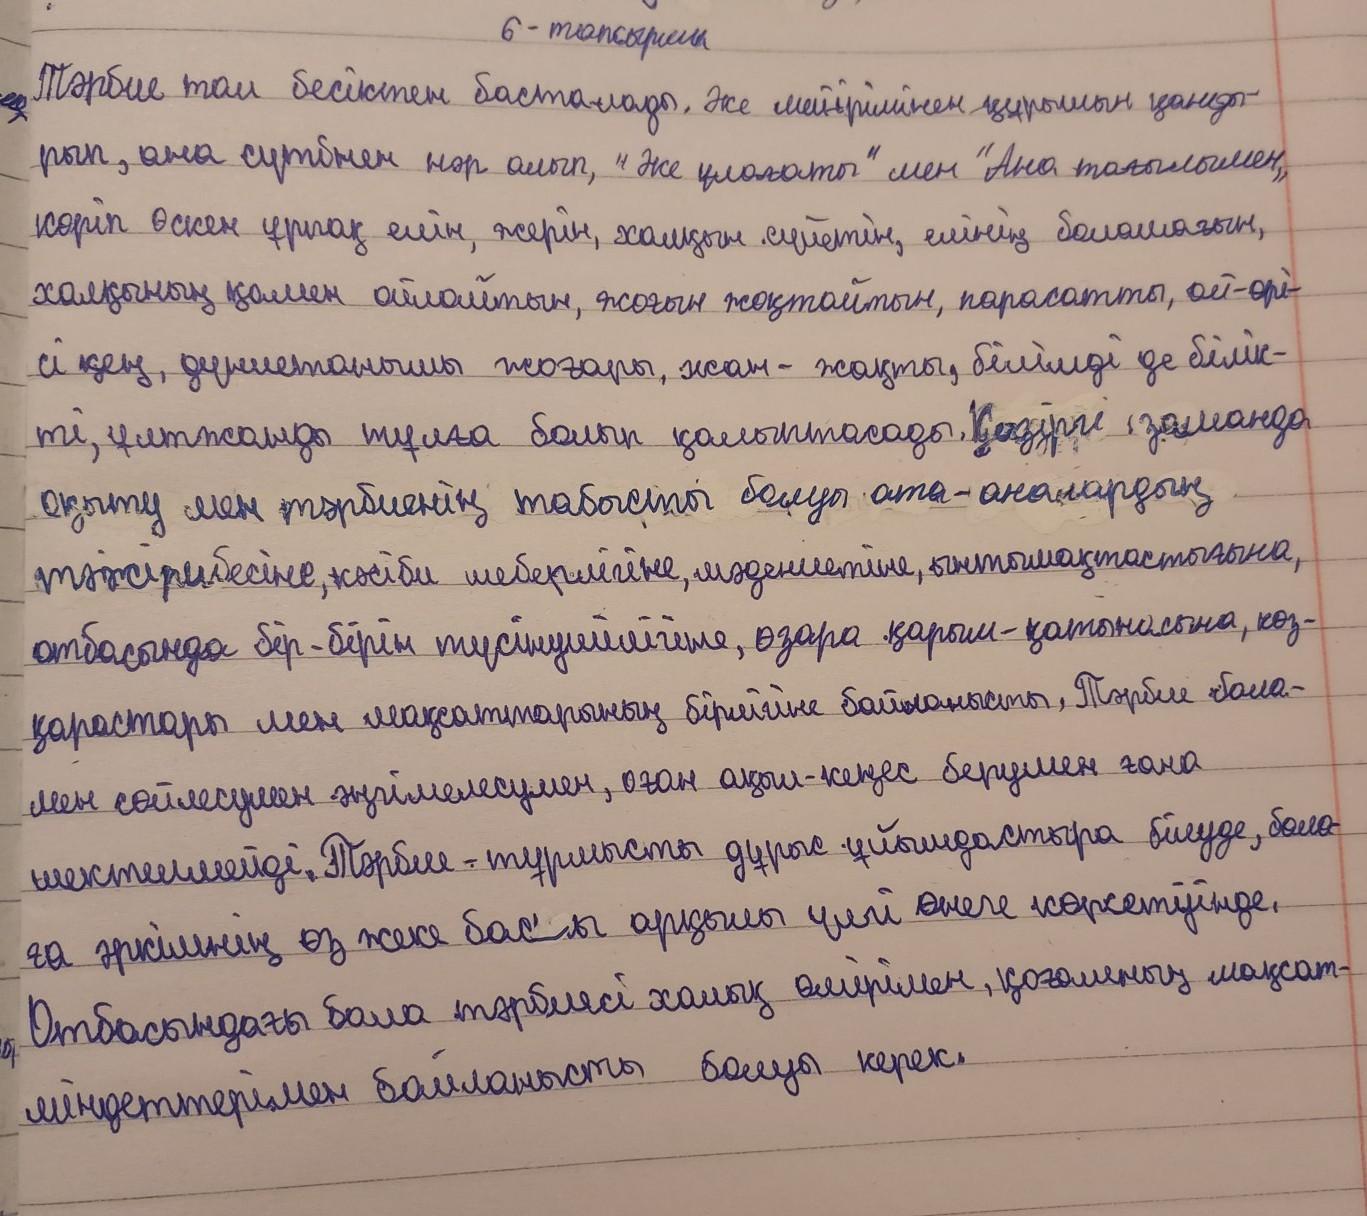 6 - тапсырма
Тәрбие тал бесіктен басталады. Әке мейірімінен құрышын қанды-
рып, ана сүтінен нәр алып, "Әке ұлағаты" мен "Ана тағылымен"
көріп өскен ұрпақ елін, жерін, халқын сүйетін, елінің болашағын,
халқының қамын ойлайтын, жоғын жоқтайтын, парасатты, ой-өрі-
сі кең, дүниетанымы жоғары, жан - жақты, білімді де білік-
ті, ұлтжанды тұлға болып қалыптасады. Қазіргі заманда
оқыту мен тәрбиенің табысты болуы ата-аналардың
тәжірибесіне, кәсіби шеберлігіне, мәдениетіне, ынтымақтастығына,
отбасында бір-бірін түсінушілігіне, өзара қарым-қатынасына, көз-
қарастары мен мақсаттарының бірлігіне байланысты, Тәрбие бала-
мен сөйлесумен әңгімелесумен, оған ақыл-кеңес берумен ғана
шектелмейді. Тәрбие - тұрмысты дұрыс ұйымдастыра білуде, бала-
ға әркімнің өз жеке басы арқылы үлгі өнеге көрсетуінде.
Отбасындағы бала тәрбиесі халық өмірімен, қоғамның мақсат-
міндеттерімен байланысты болуы керек.